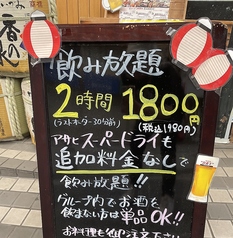 飲み放題
2時間 1800
(ラストオーダー30分前) (税込1980円)
アサヒスーパードライも
追加料金なしで
飲み放題!!
グループ内でお酒を
飲まない方は単品OK!!
お料理も